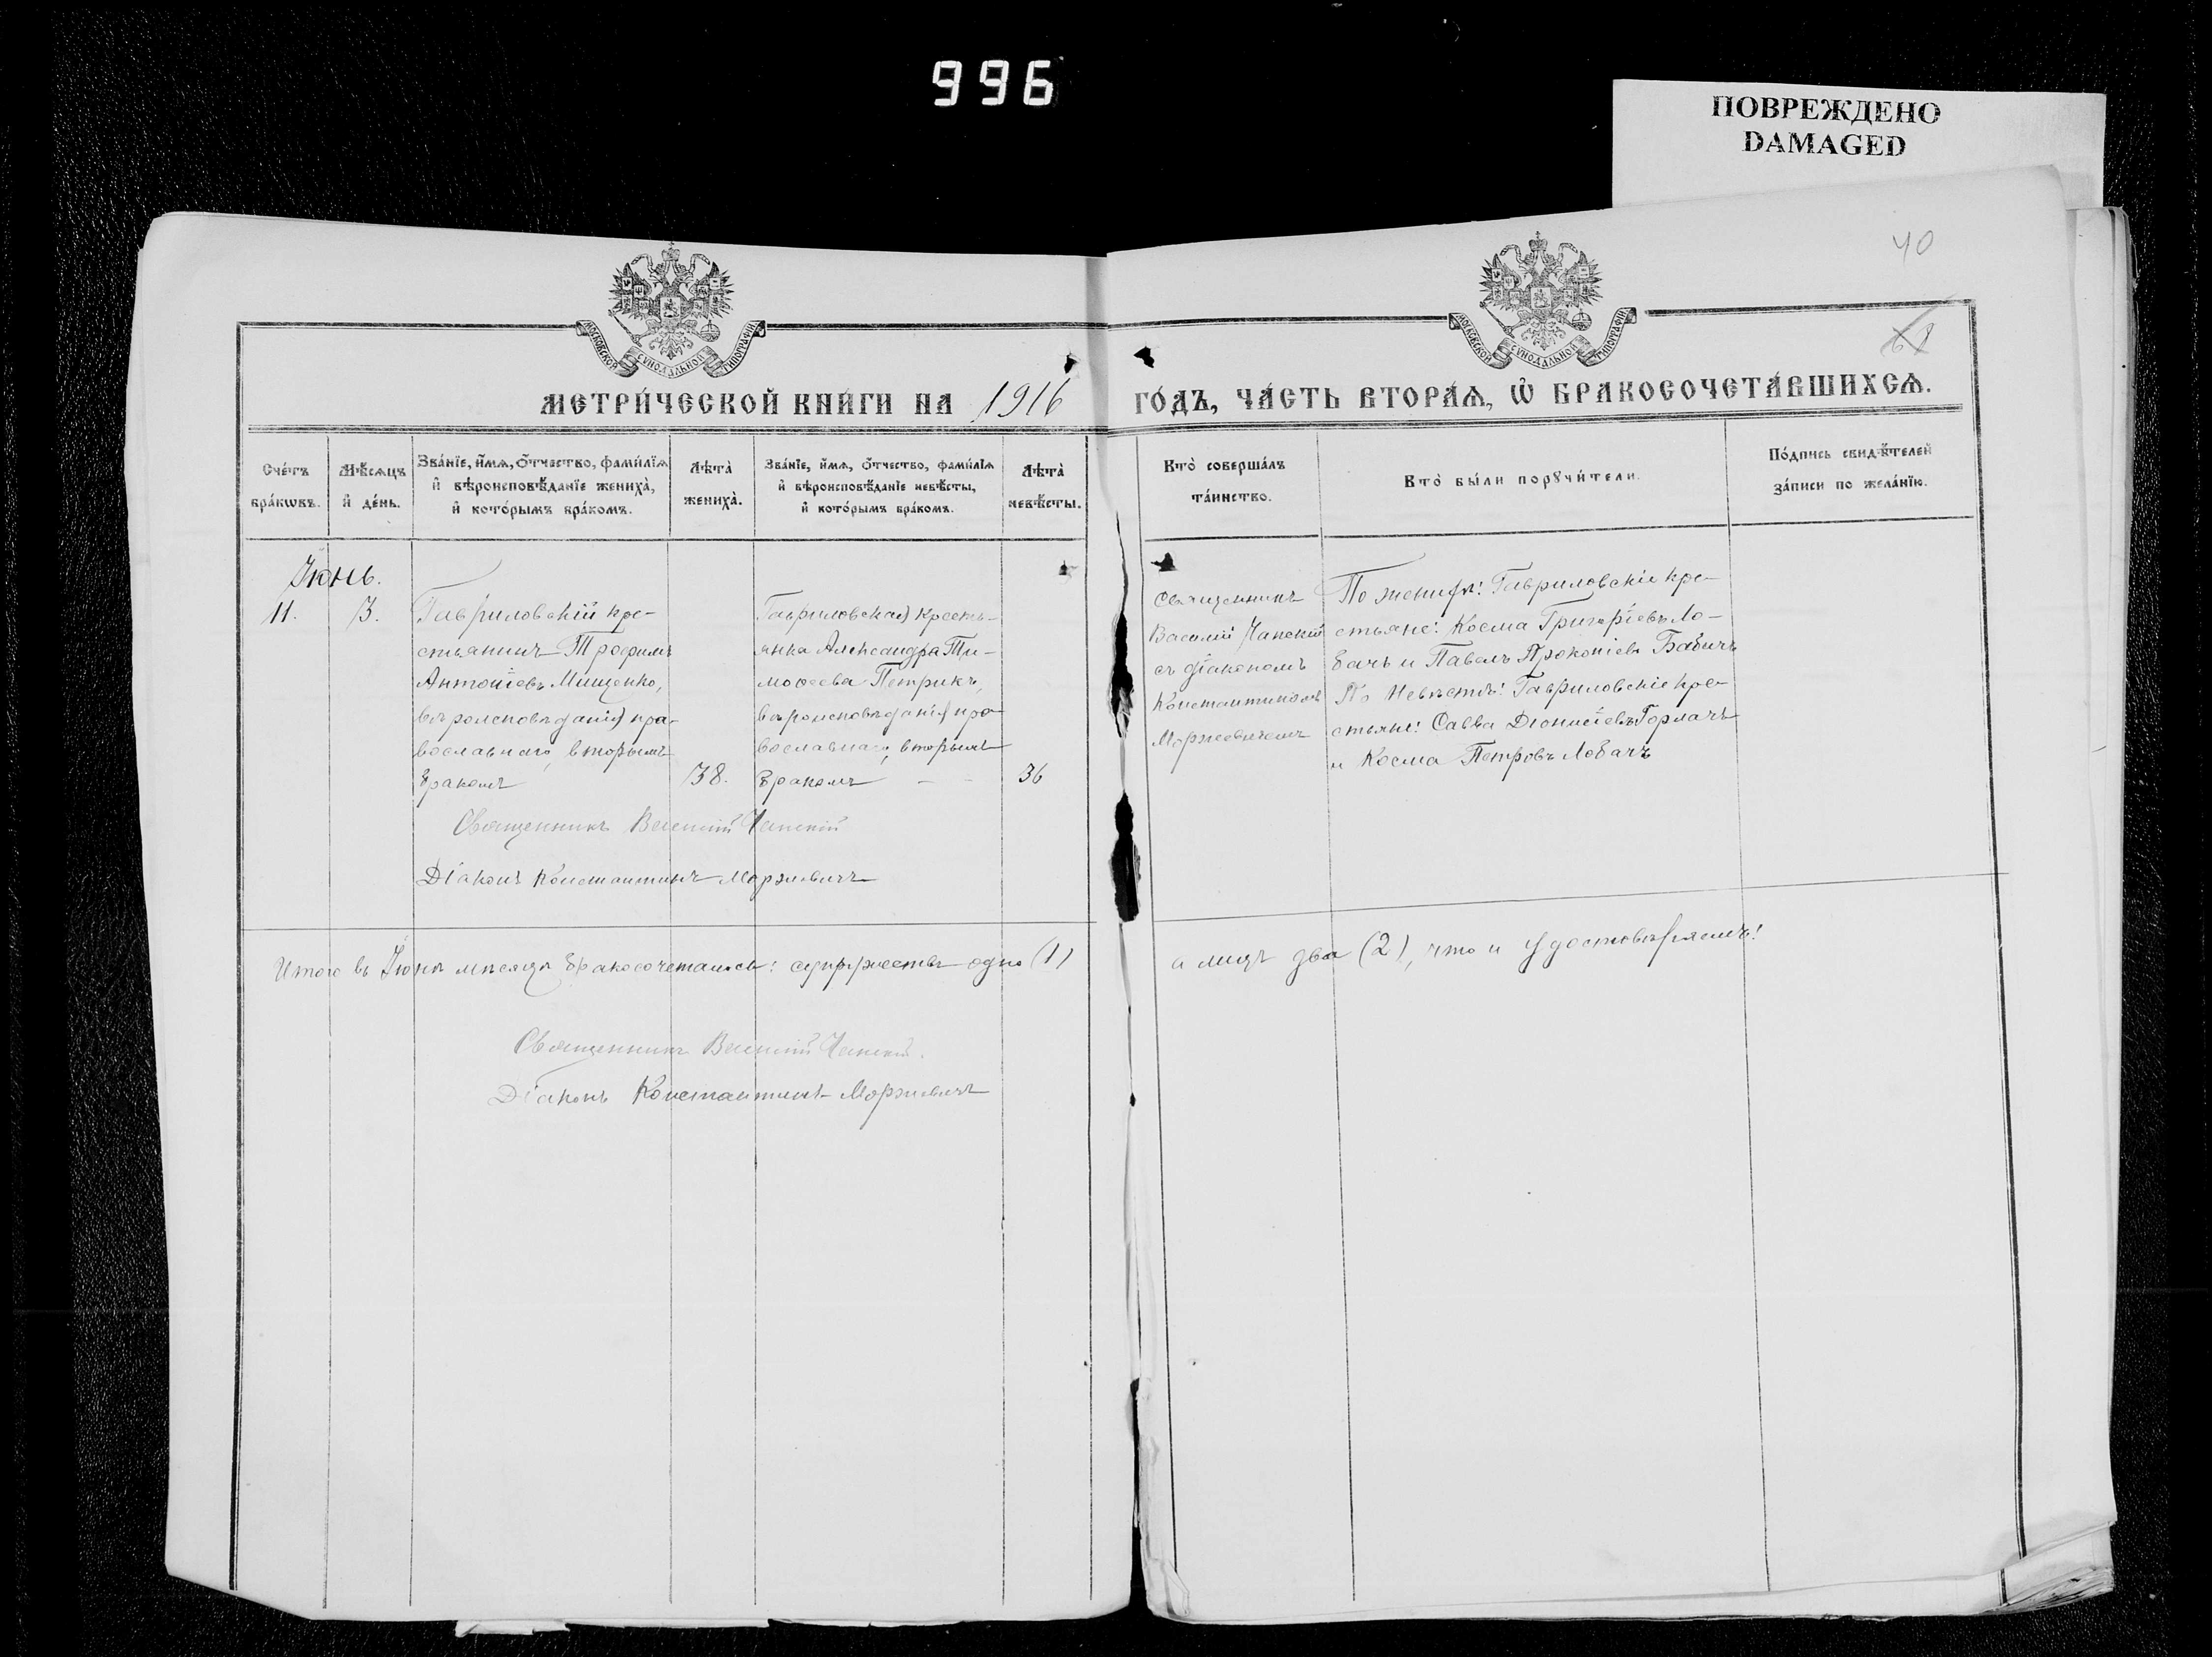 996
ПОВРЕЖДЕНО
DAMAGED
40
61
МОСКОВСКОЙ СУНОДАЛЬНОЙ ТИПОГРАФИИ
МОСКОВСКОЙ СУНОДАЛЬНОЙ ТИПОГРАФИИ
МЕТРИ́ЧЕСКОЙ КНИ́ГИ НА 1916 ГО́ДЪ, ЧА́СТЬ ВТОРА́Ѧ, Ѡ҆ БРАКОСОЧЕТА́ВШИХСѦ.
Сче́тъ
бра́кωвъ.
Мѣ́сѧцъ
и҆ де́нь.
Зва́нїе, и҆́мѧ, ѻ҆́тчество, фами́лїѧ
и҆ вѣроисповѣ́данїе жениха̀,
и҆ кото́рымъ бра́комъ.
Лѣта̀
жениха̀.
Зва́нїе, и҆́мѧ, ѻ҆́тчество, фами́лїѧ
и҆ вѣроисповѣ́данїе невѣ́сты,
и҆ кото́рымъ бра́комъ.
Лѣта̀
невѣ́сты.
Кто̀ соверша́лъ
та́инство.
Кто̀ бы́ли порꙋчи́тели.
По́дпись свидѣ́телей
за́писи по жела́нїю.
Іюнь.
11.
3.
Гавриловскій кре-
стьянинъ Трофимъ
Антоніевъ Мищенко,
вѣроисповѣданія пра-
вославнаго, вторымъ
бракомъ
38.
Гавриловская кресть-
янка Александра Ти-
моѳеева Петрикъ,
вѣроисповѣданія пра-
вославнаго, вторымъ
бракомъ - -
36
Священникъ
Василій Чапскій
съ діакономъ
Константиномъ
Моржевичемъ
По женихѣ: Гавриловскіе кре-
стьяне: Косма Григоріевъ Ло-
бачъ и Павелъ Прокопіевъ Бабичъ
По невѣстѣ: Гавриловскіе кре-
стьяне: Савва Діонисіевъ Горлачъ
и Косма Петровъ Лобачъ
Священникъ Василій Чапскій
Діаконъ Константинъ Моржевичъ
Итого въ Іюнѣ мѣсяцѣ бракосочеталось: супружество одно (1)
а лицъ два (2), что и удостовѣряемъ!
Священникъ Василій Чапскій.
Діаконъ Константинъ Моржевичъ